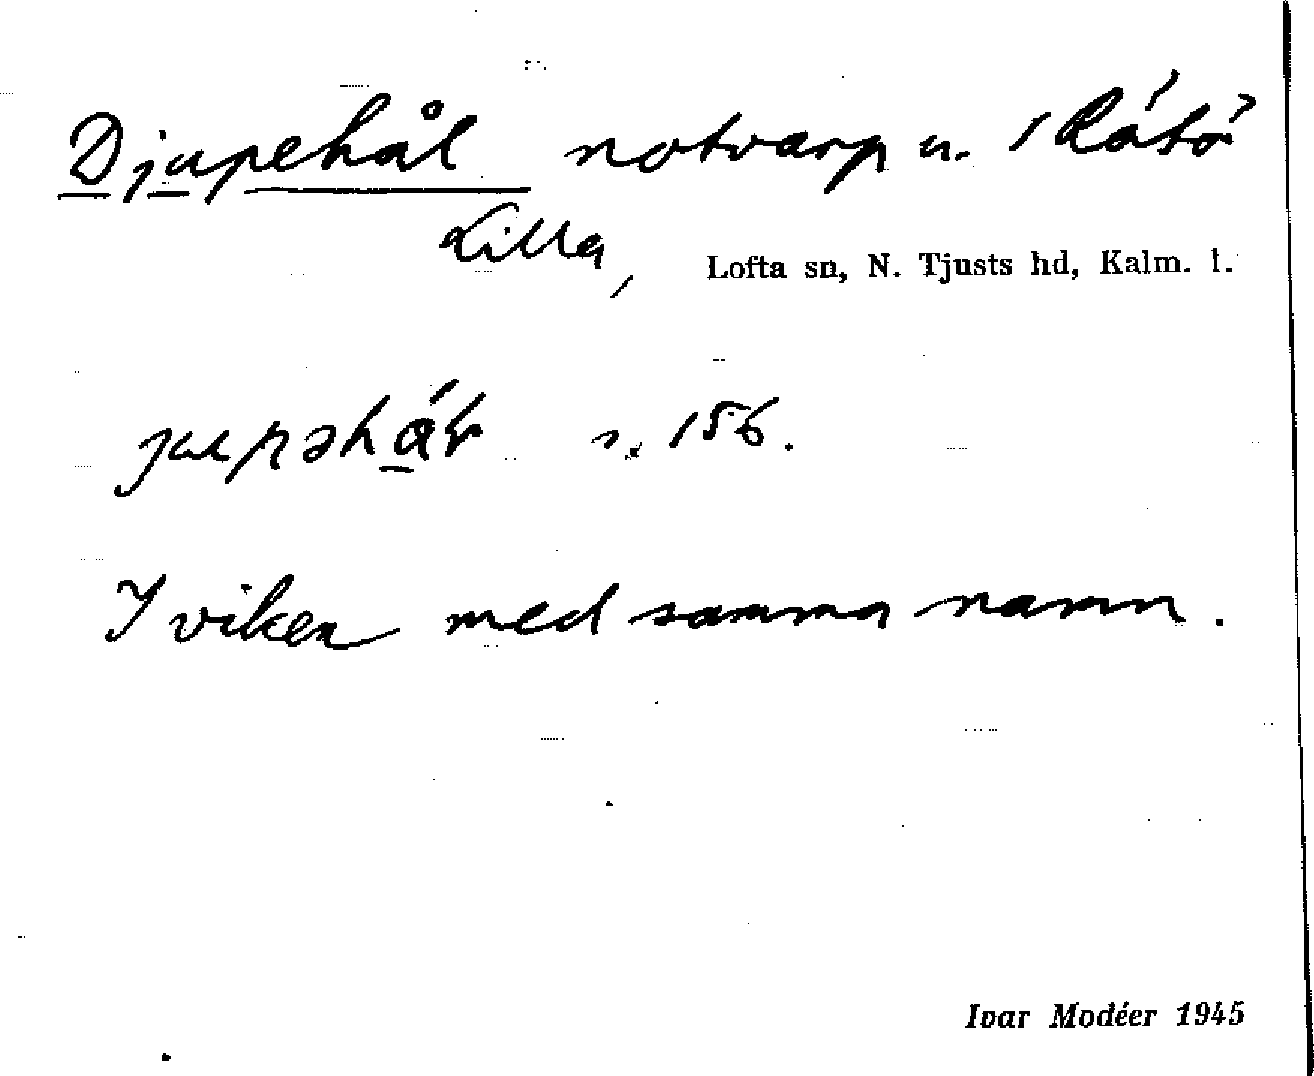 Djupehål notvarp u. Rátö
Lilla,
Lofta sn, N. Tjusts hd, Kalm. l.
s. 156.
I viken med samma namn.
Ivar Modéer 1945